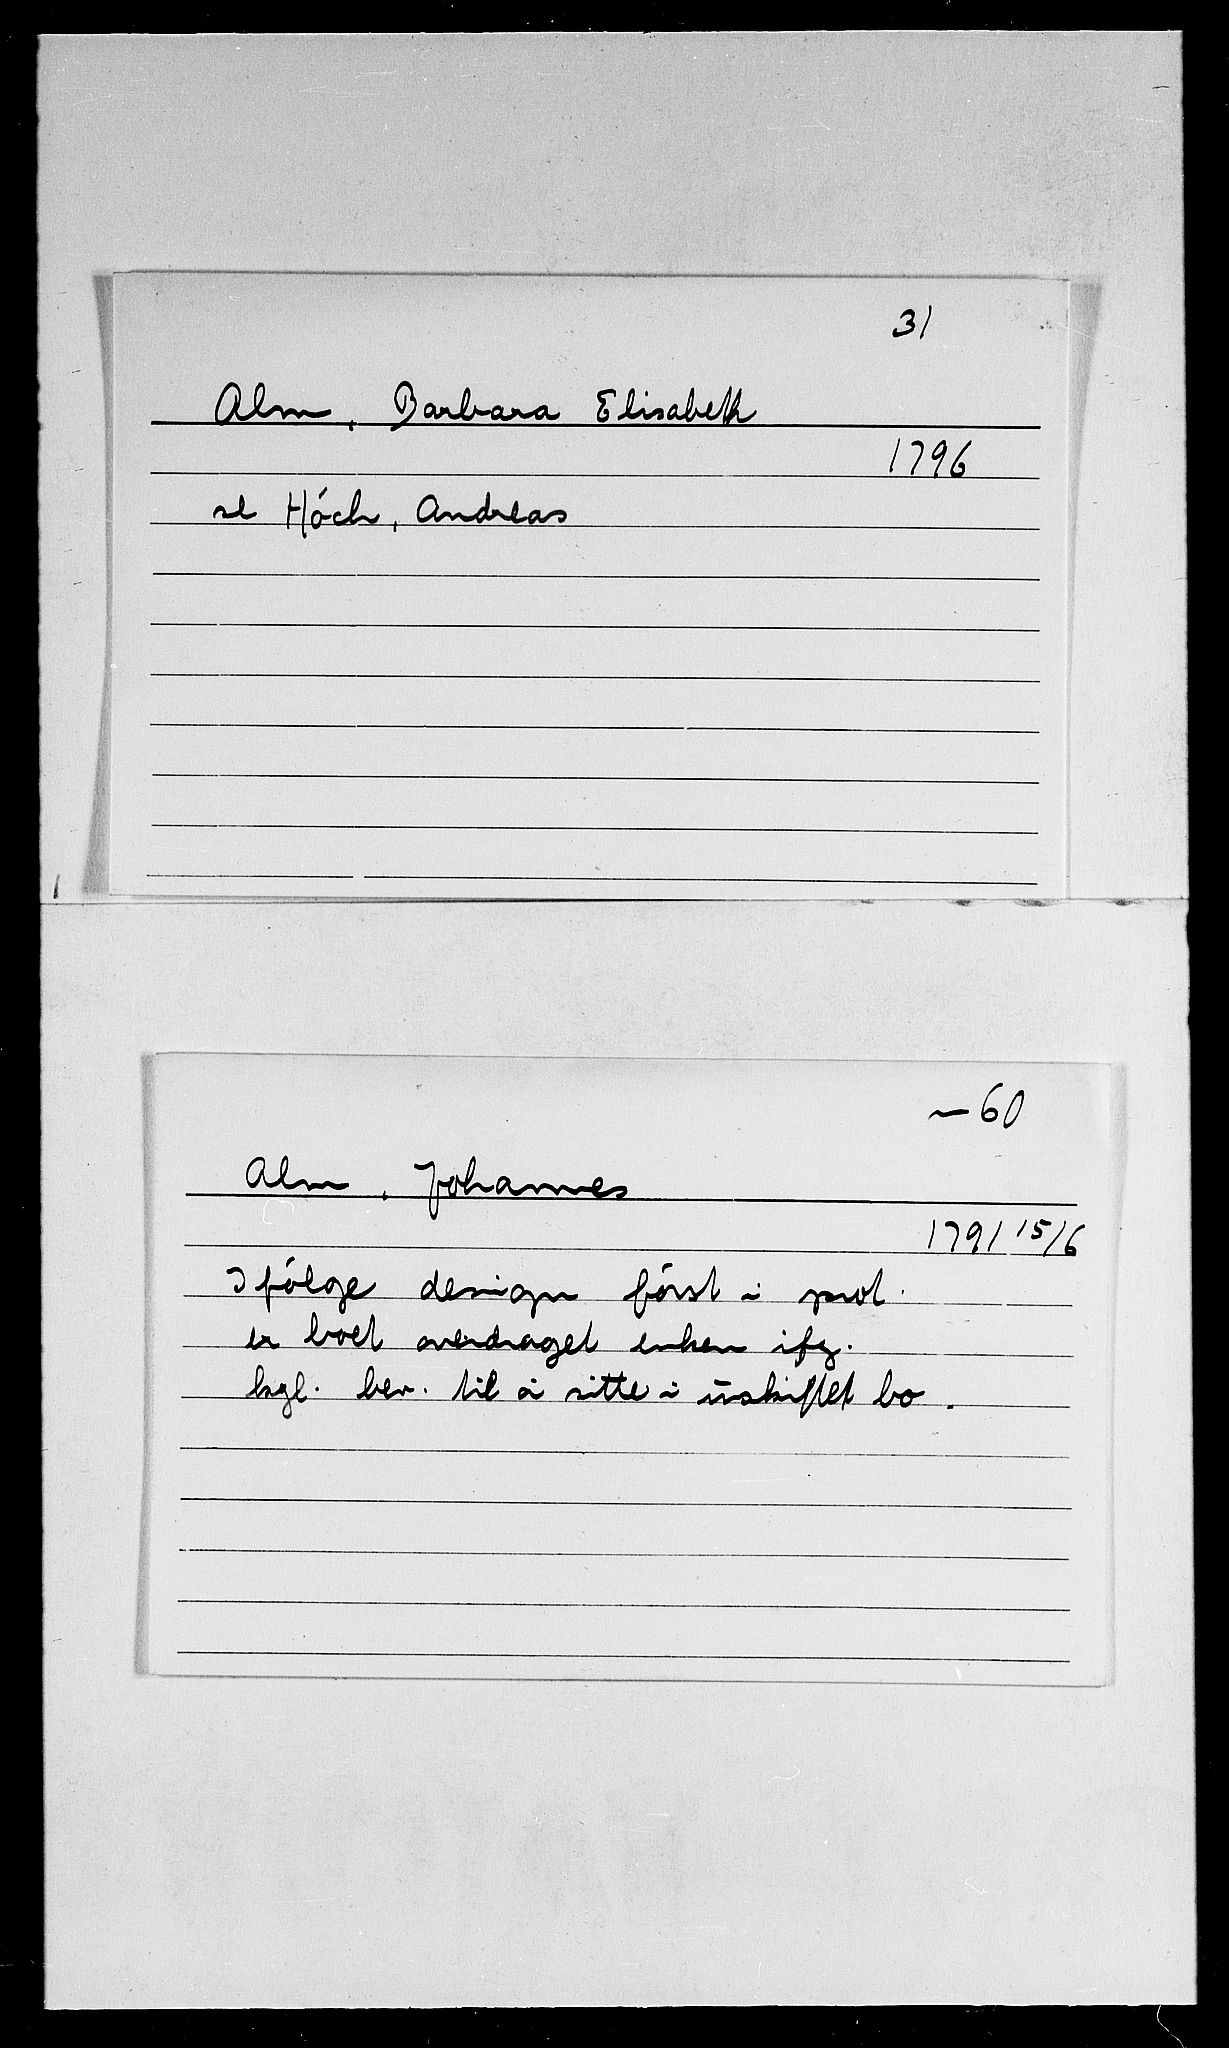 31
Alm, Barbara Elisabeth
1796
se Höch, Andreas
~60
Alm, Johannes
1791 15/6
Ifólge design först i prot.
er boet overdraget enken ifg.
kgl. bev. til å sitte i uskiftet bo.